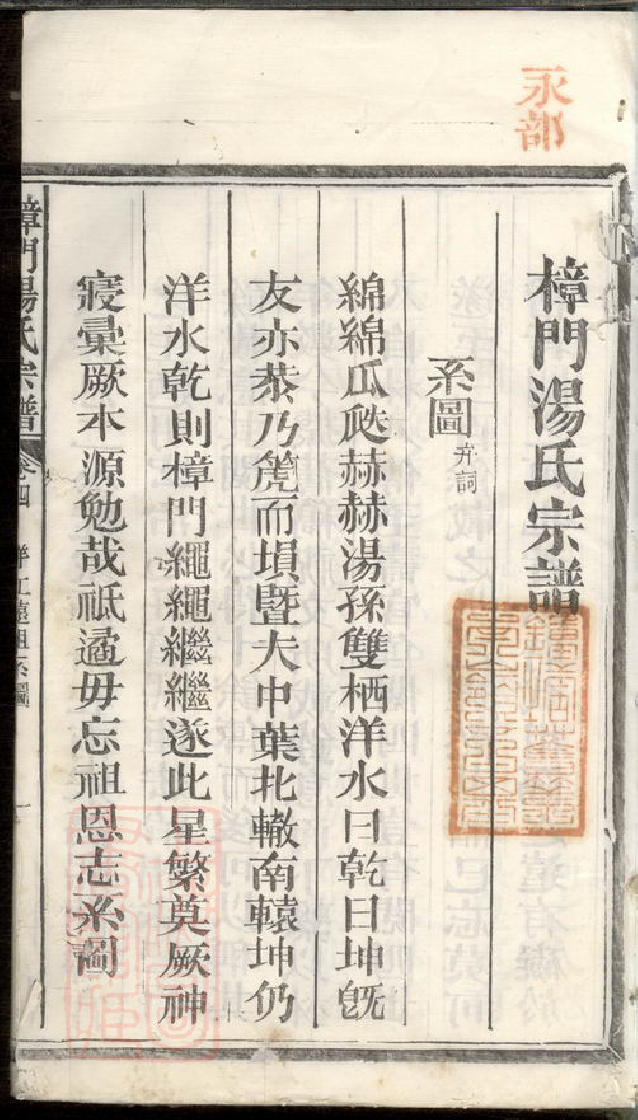 永部
樟門湯氏宗譜
系圖 弁詞
綿綿瓜瓞赫赫湯孫雙栖洋水曰乾曰坤旣
友亦恭乃箎而塤曁夫中葉北轍南轅坤仍
洋水乾則樟門繩繩繼繼遂此星繁莫厥神
寢彚厥本源勉哉祗遹毋忘祖恩志系圖
樟門湯氏宗譜 卷四 洋江遠祖系圖 一